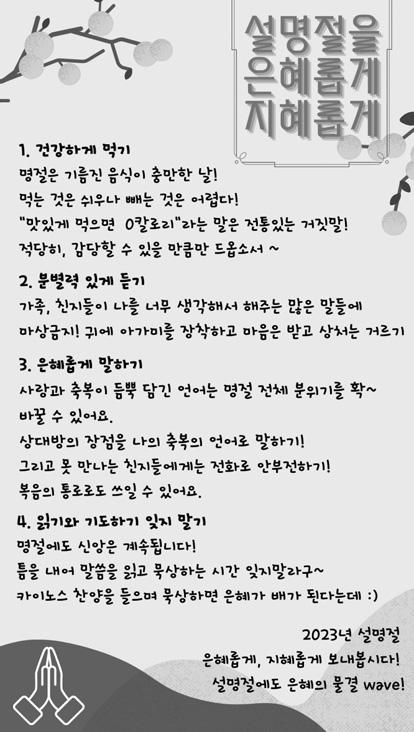 설명절을
은혜롭게
지혜롭게
1. 건강하게 먹기
명절은 기름진 음식이 충만한 날!
먹는 것은 쉬우나 빼는 것은 어렵다!
"맛있게 먹으면 0칼로리"라는 말은 전통있는 거짓말!
적당히, 감당할 수 있을 만큼만 드옵소서 ~
2. 분별력 있게 듣기
가족, 친지들이 나를 너무 생각해서 해주는 많은 말들에
마상금지! 귀에 아가미를 장착하고 마음은 받고 상처는 거르기
3. 은혜롭게 말하기
사랑과 축복이 듬뿍 담긴 언어는 명절 전체 분위기를 확~
바꿀 수 있어요.
상대방의 장점을 나의 축복의 언어로 말하기!
그리고 못 만나는 친지들에게는 전화로 안부전하기!
복음의 통로로도 쓰일 수 있어요.
4. 읽기와 기도하기 잊지 말기
명절에도 신앙은 계속됩니다!
틈을 내어 말씀을 읽고 묵상하는 시간 잊지말라구~
카이노스 찬양을 들으며 묵상하면 은혜가 배가 된다는데 :)
2023년 설명절
은혜롭게, 지혜롭게 보내봅시다!
설명절에도 은혜의 물결 wave!